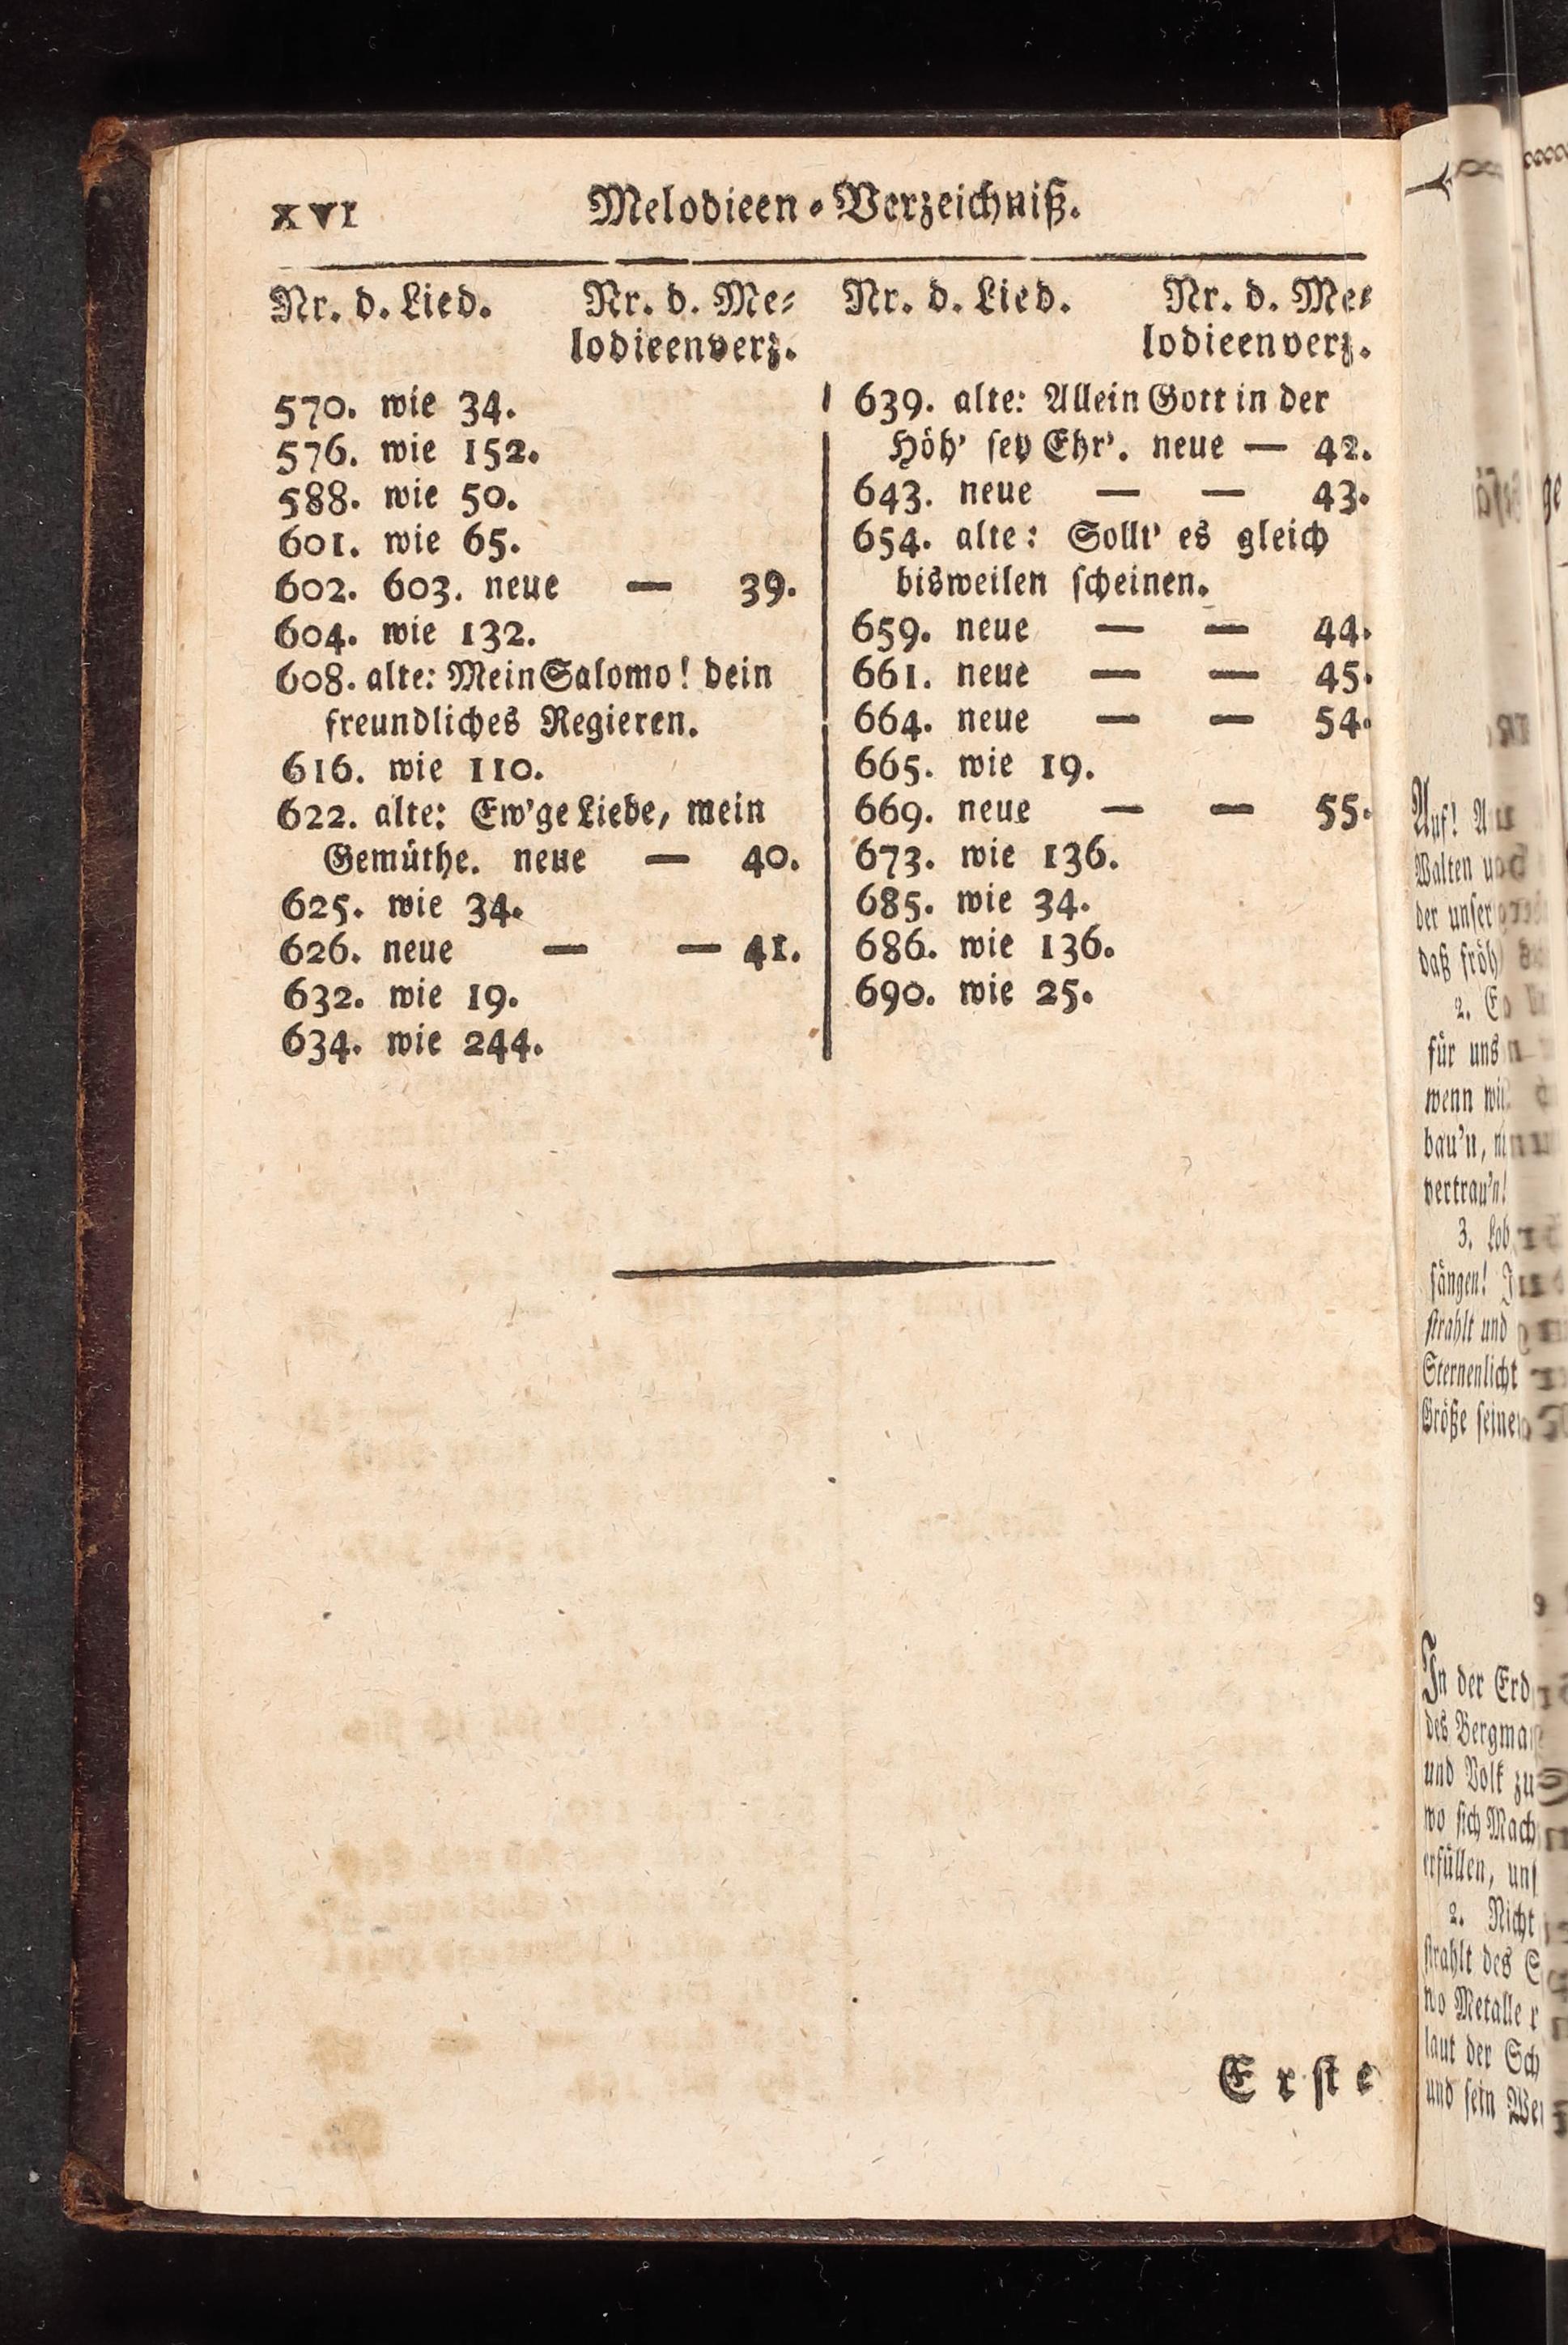 XVI Melodieen-Verzeichniß.
Nr. d. Lied. Nr. d. Me-
lodieenverz.
570. wie 34.
576. wie 152.
588. wie 50.
601. wie 65.
602. 603. neue — 39.
604. wie 132.
608. alte: Mein Salomo! dein
freundliches Regieren.
616. wie 110.
622. alte: Ew'ge Liebe, mein
Gemüthe. neue — 40.
625. wie 34.
626. neue — — 41.
632. wie 19.
634. wie 244.
Nr. d. Lied. Nr. d. Me-
lodieenverz.
639. alte: Allein Gott in der
Höh' sey Ehr'. neue — 42.
643. neue — — 43.
654. alte: Sollt' es gleich
bisweilen scheinen.
659. neue — — 44.
661. neue — — 45.
664. neue — — 54.
665. wie 19.
669. neue — — 55.
673. wie 136.
685. wie 34.
686. wie 136.
690. wie 25.
Erste
Auf!
Walten
der unser
daß
2.
für uns
wenn
bau'n,
vertrau'n!
3.
sängen!
strahlt und
Sternenlicht
Größe
In der
des
und Volk zu
wo sich
erfüllen,
2. Nicht
strahlt des
wo Metalle
laut der
und sein